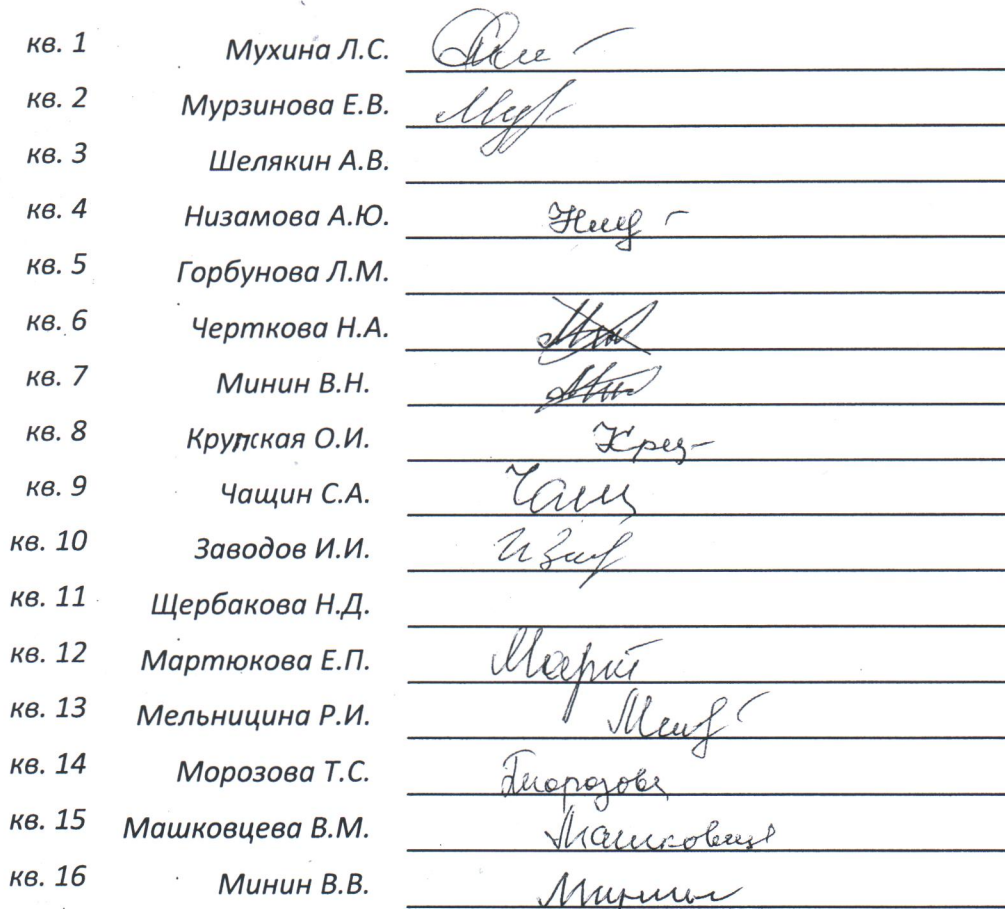 кв. 1 Мухина Л.С.
кв. 2 Мурзинова Е.В.
кв. 3 Шелякин А.В.
кв. 4 Низамова А.Ю.
кв. 5 Горбунова Л.М.
кв. 6 Черткова Н.А.
кв. 7 Минин В.Н.
кв. 8 Крупская О.И.
кв. 9 Чащин С.А. Чащ
кв. 10 Заводов И.И.
кв. 11 Щербакова Н.Д.
кв. 12 Мартюкова Е.П.
кв. 13 Мельницина Р.И.
кв. 14 Морозова Т.С. Морозова
кв. 15 Машковцева В.М.
кв. 16 Минин В.В.